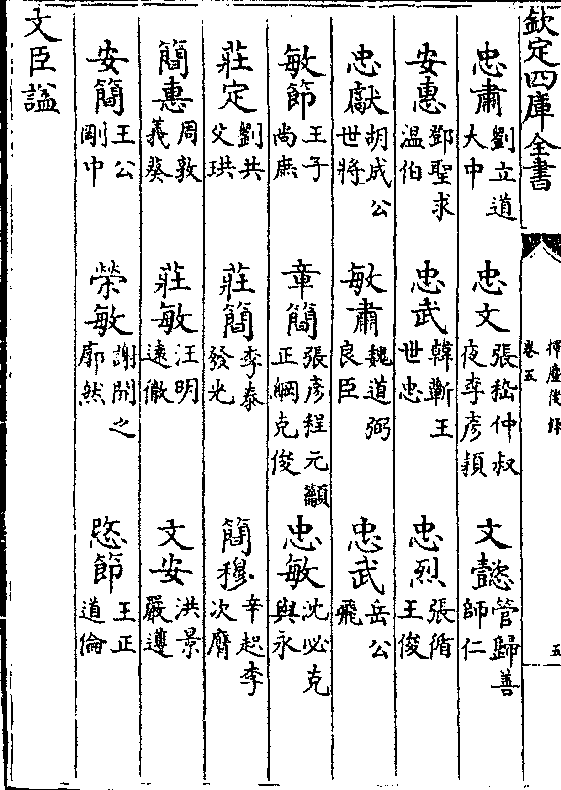 欽定四庫全書
揮麈後錄
卷五
五
忠肅劉立道大中 忠文張嵇仲叔夜李彥穎 文懿管歸善師仁
安惠鄧聖求溫伯 忠武韓蘄王世忠 忠烈張循王俊
忠獻胡成公世將 敏肅魏道弼良臣 忠武岳公飛
敏節王子尚庶 章簡張彥正綱程元顓克俊 忠敏沈必先與永
莊定劉共父珙 莊簡李泰發光 簡穆辛起李次膺
簡惠周敦義葵 莊敏汪明遠徹 文安洪景嚴遵
安簡王公剛中 榮敏謝開之廓然 愍節王正道倫
文臣諡